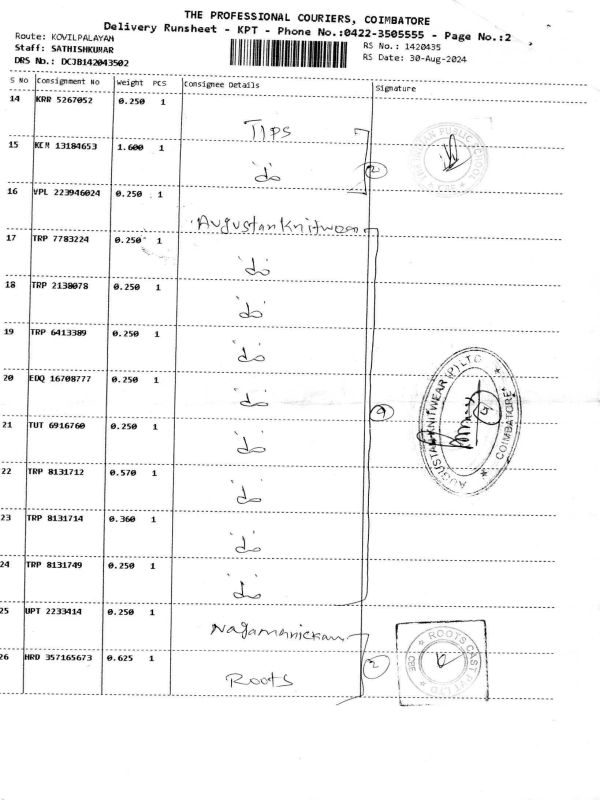 THE PROFESSIONAL COURIERS, COIMBATORE
Delivery Runsheet - KPT - Phone No.:0422-3505555 - Page No.:2
Route: KOVILPALAYAM
RS No.: 1420435
Staff: SATHISHKUMAR
RS Date: 30-Aug-2024
DRS No.: DCJB142043502
S No Consignment No Weight PCS Consignee Details Signature
14 KRR 5267052 0.250 1 TIPS
15 KCM 13184653 1.600 1 'do' 2
PUBLIC SCHOOL
CBE
16 VPL 223946024 0.250 1 Augustan Knitwear
17 TRP 7783224 0.250 1 'do'
18 TRP 2138078 0.250 1 'do'
19 TRP 6413389 0.250 1 'do'
20 EDQ 16708777 0.250 1 'do' 9
AUGUSTAN KNITWEAR (P) LTD
COIMBATORE
9
21 TUT 6916760 0.250 1 'do'
22 TRP 8131712 0.570 1 'do'
23 TRP 8131714 0.360 1 'do'
24 TRP 8131749 0.250 1 'do'
25 UPT 2233414 0.250 1 Nagamanickam
26 HRD 357165673 0.625 1 Roots 2
ROOTS CAST PVT LTD
CBE